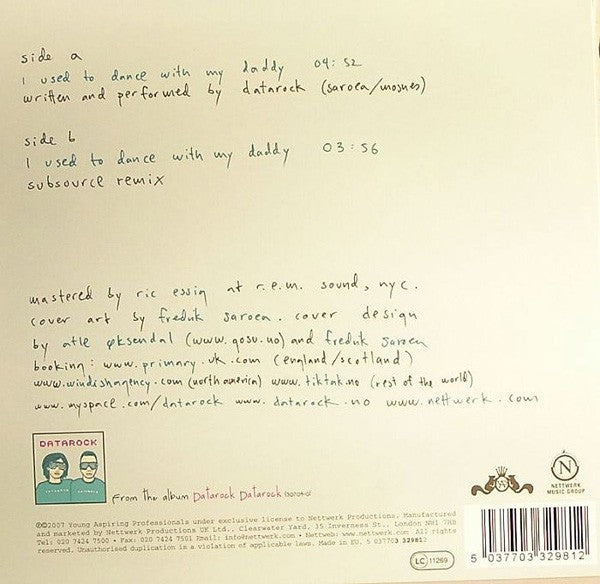 side a
I used to dance with my daddy 04:52
written and performed by datarock (saroea/mosnes)
side b
I used to dance with my daddy 03:56
subsource remix
mastered by ric essig at r.e.m. sound, nyc.
cover art by fredrik saroea. cover design
by atle øksendal (www.qosu.no) and fredrik saroea
booking: www.primary.uk.com (england/scotland)
www.windishagency.com (north america) www.tiktak.no (rest of the world)
www.myspace.com/datarock www.datarock.no www.nettwerk.com
DATAROCK
From the album Datarock Datarock
℗©2007 Young Aspiring Professionals under exclusive license to Nettwerk Productions. Manufactured
and marketed by Nettwerk Productions UK Ltd., Clearwater Yard, 35 Inverness St., London NW1 7HB
Tel: 020 7424 7500 • Fax: 020 7424 7501 Email: info@nettwerk.com • Netweb: www.nettwerk.com All rights
reserved. Unauthorised duplication is a violation of applicable laws. Made in EU.
N
NETTWERK
MUSIC GROUP
LC 11269
5 037703 329812